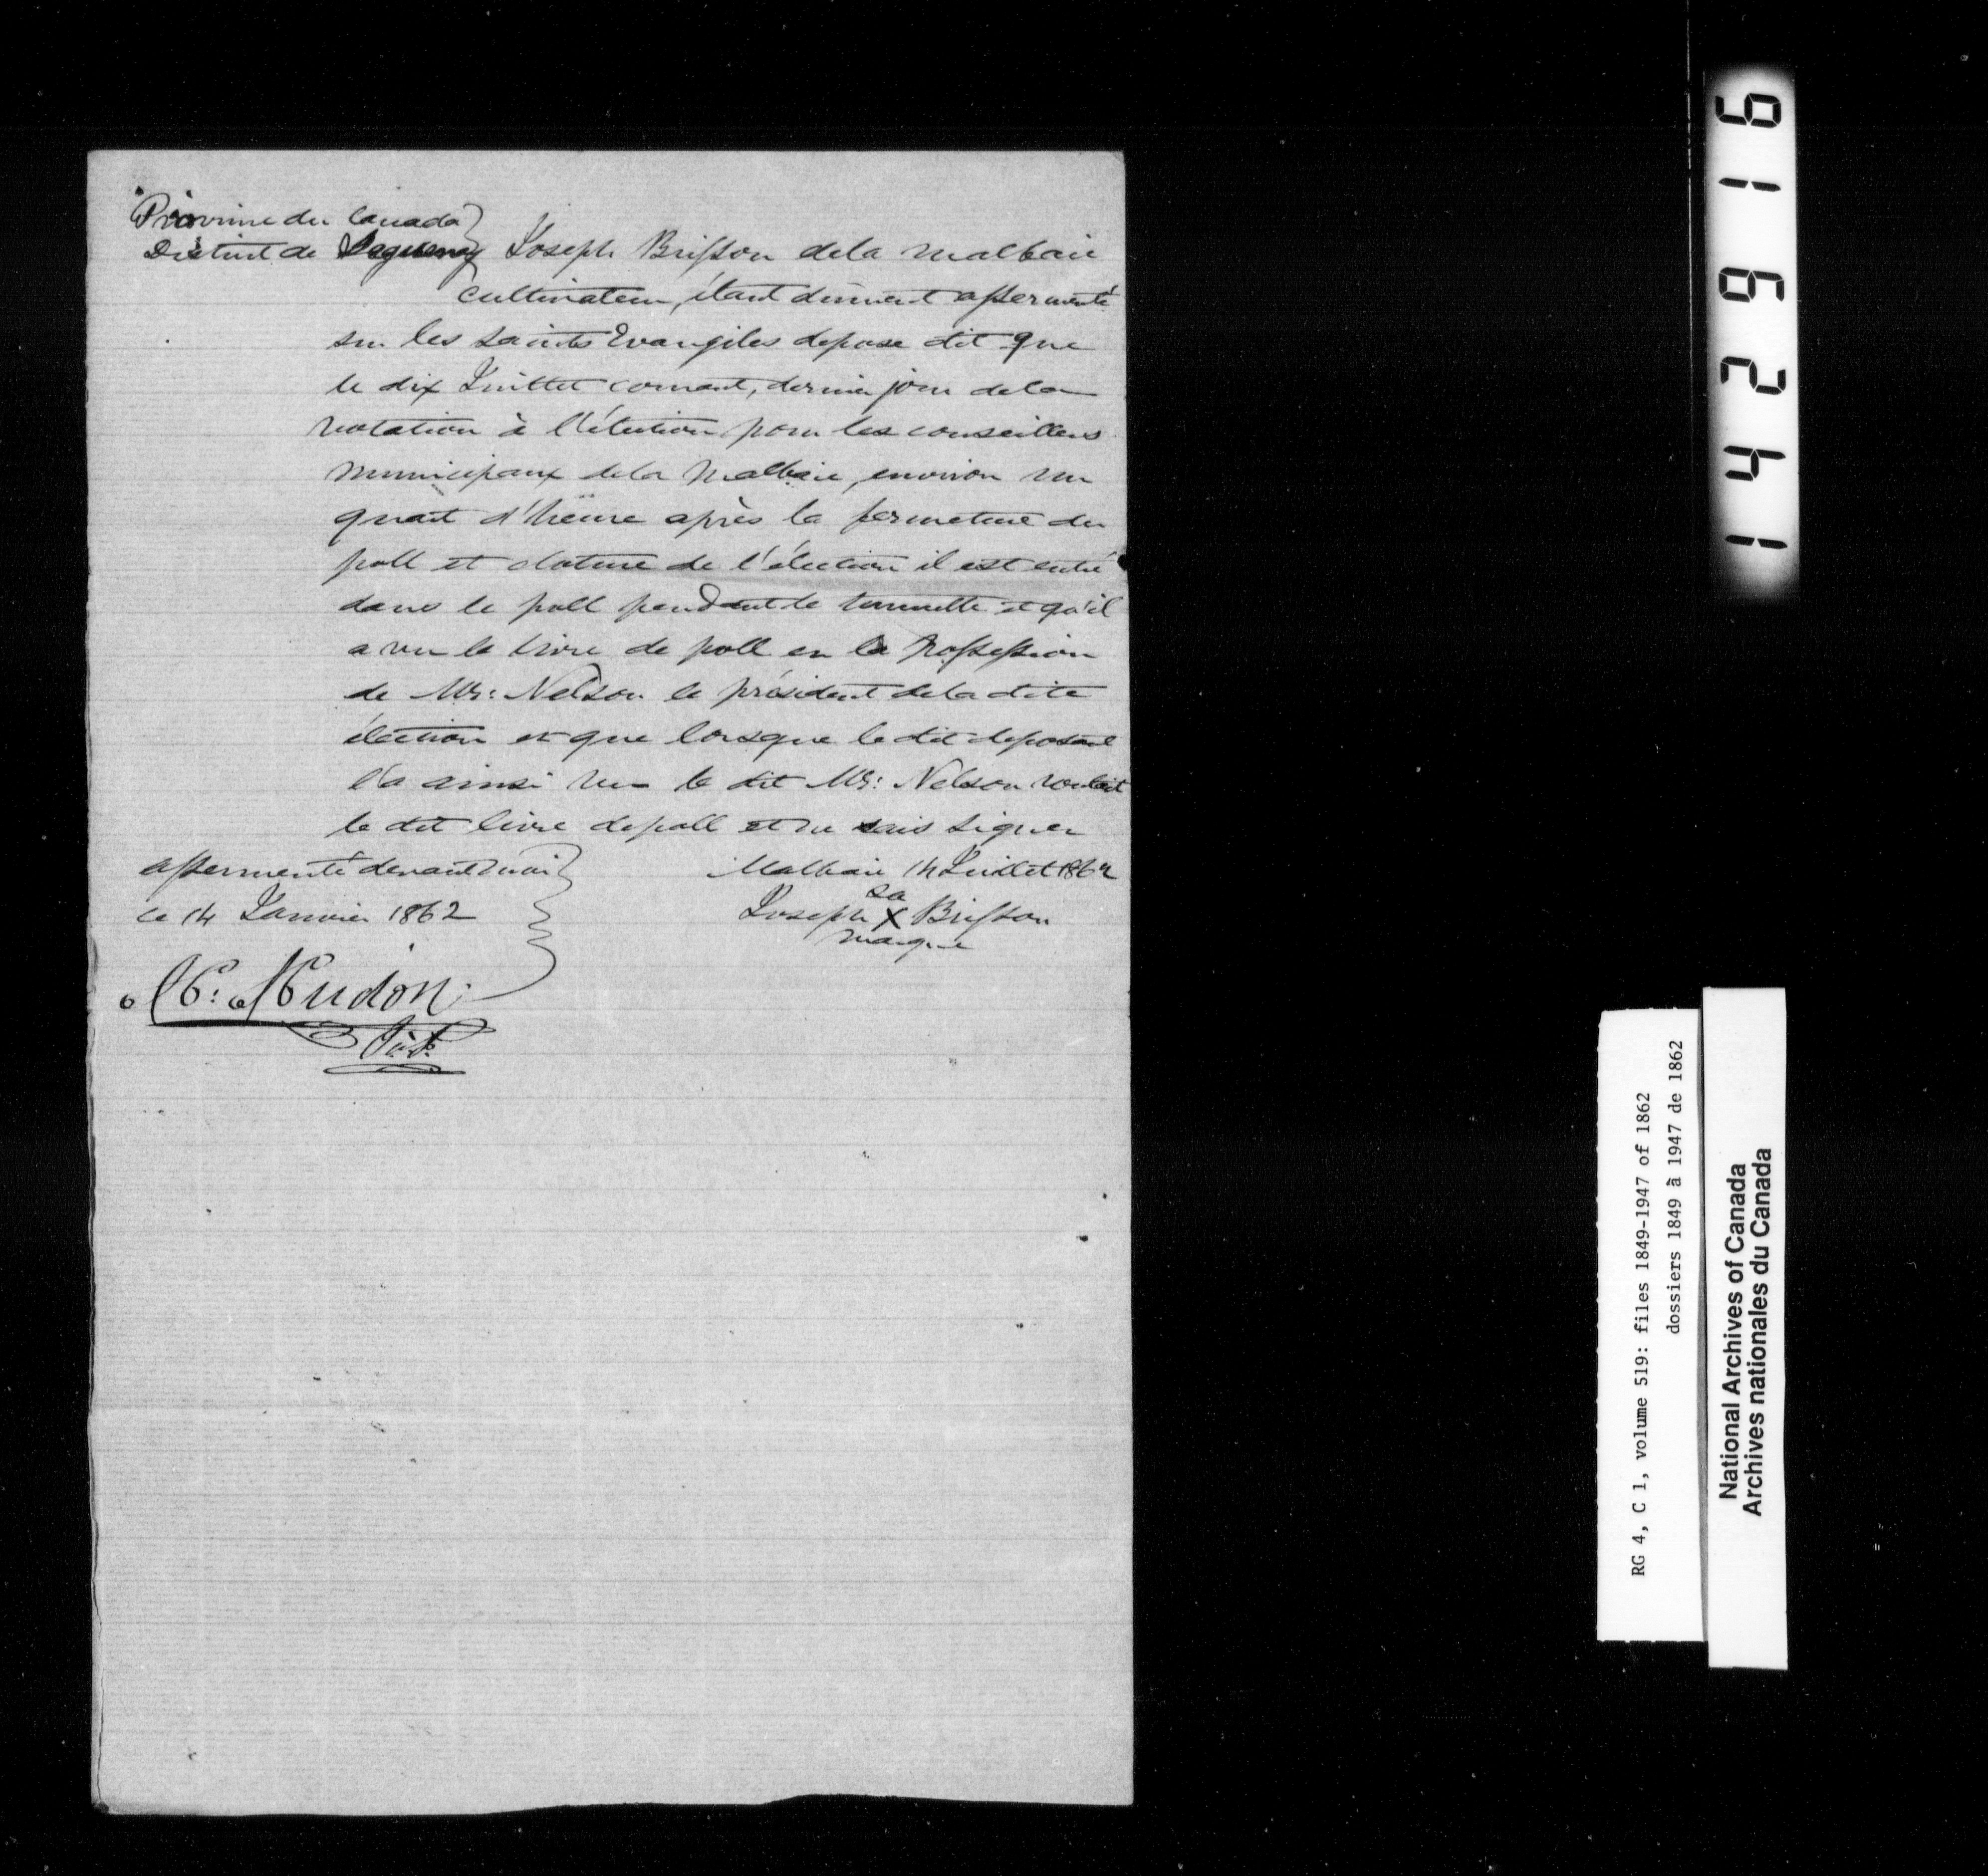 Province du Canada
District de Saguenay Joseph Brisson de la Malbaie
cultivateur, étant dûment assermenté
sur les saints Evangiles depose dit que
le dix Juillet courant, dernier jour de la
votation à l'élection pour les conseillers
municipaux de la Malbaie, environ un
quart d'heure après la fermeture du
poll et cloture de l'élection il est entré
dans le poll pendant le et qu'il
a vu le livre de poll en la possession
de Mr: Nelson le président de la dite
élection et que lorsque le dit deposant
l'a ainsi vu le dit Mr: Nelson roulait
le dit livre de poll et ne sais signer
assermenté devant moi Malbaie 14 Juillet 1862
ce 14 Janvier 1862 Joseph X Brisson
sa
marque
H: Hudon
J.P.
14296 16
RG 4, C 1, volume 519: files 1849-1947 of 1862
dossiers 1849 à 1947 de 1862
National Archives of Canada
Archives nationales du Canada